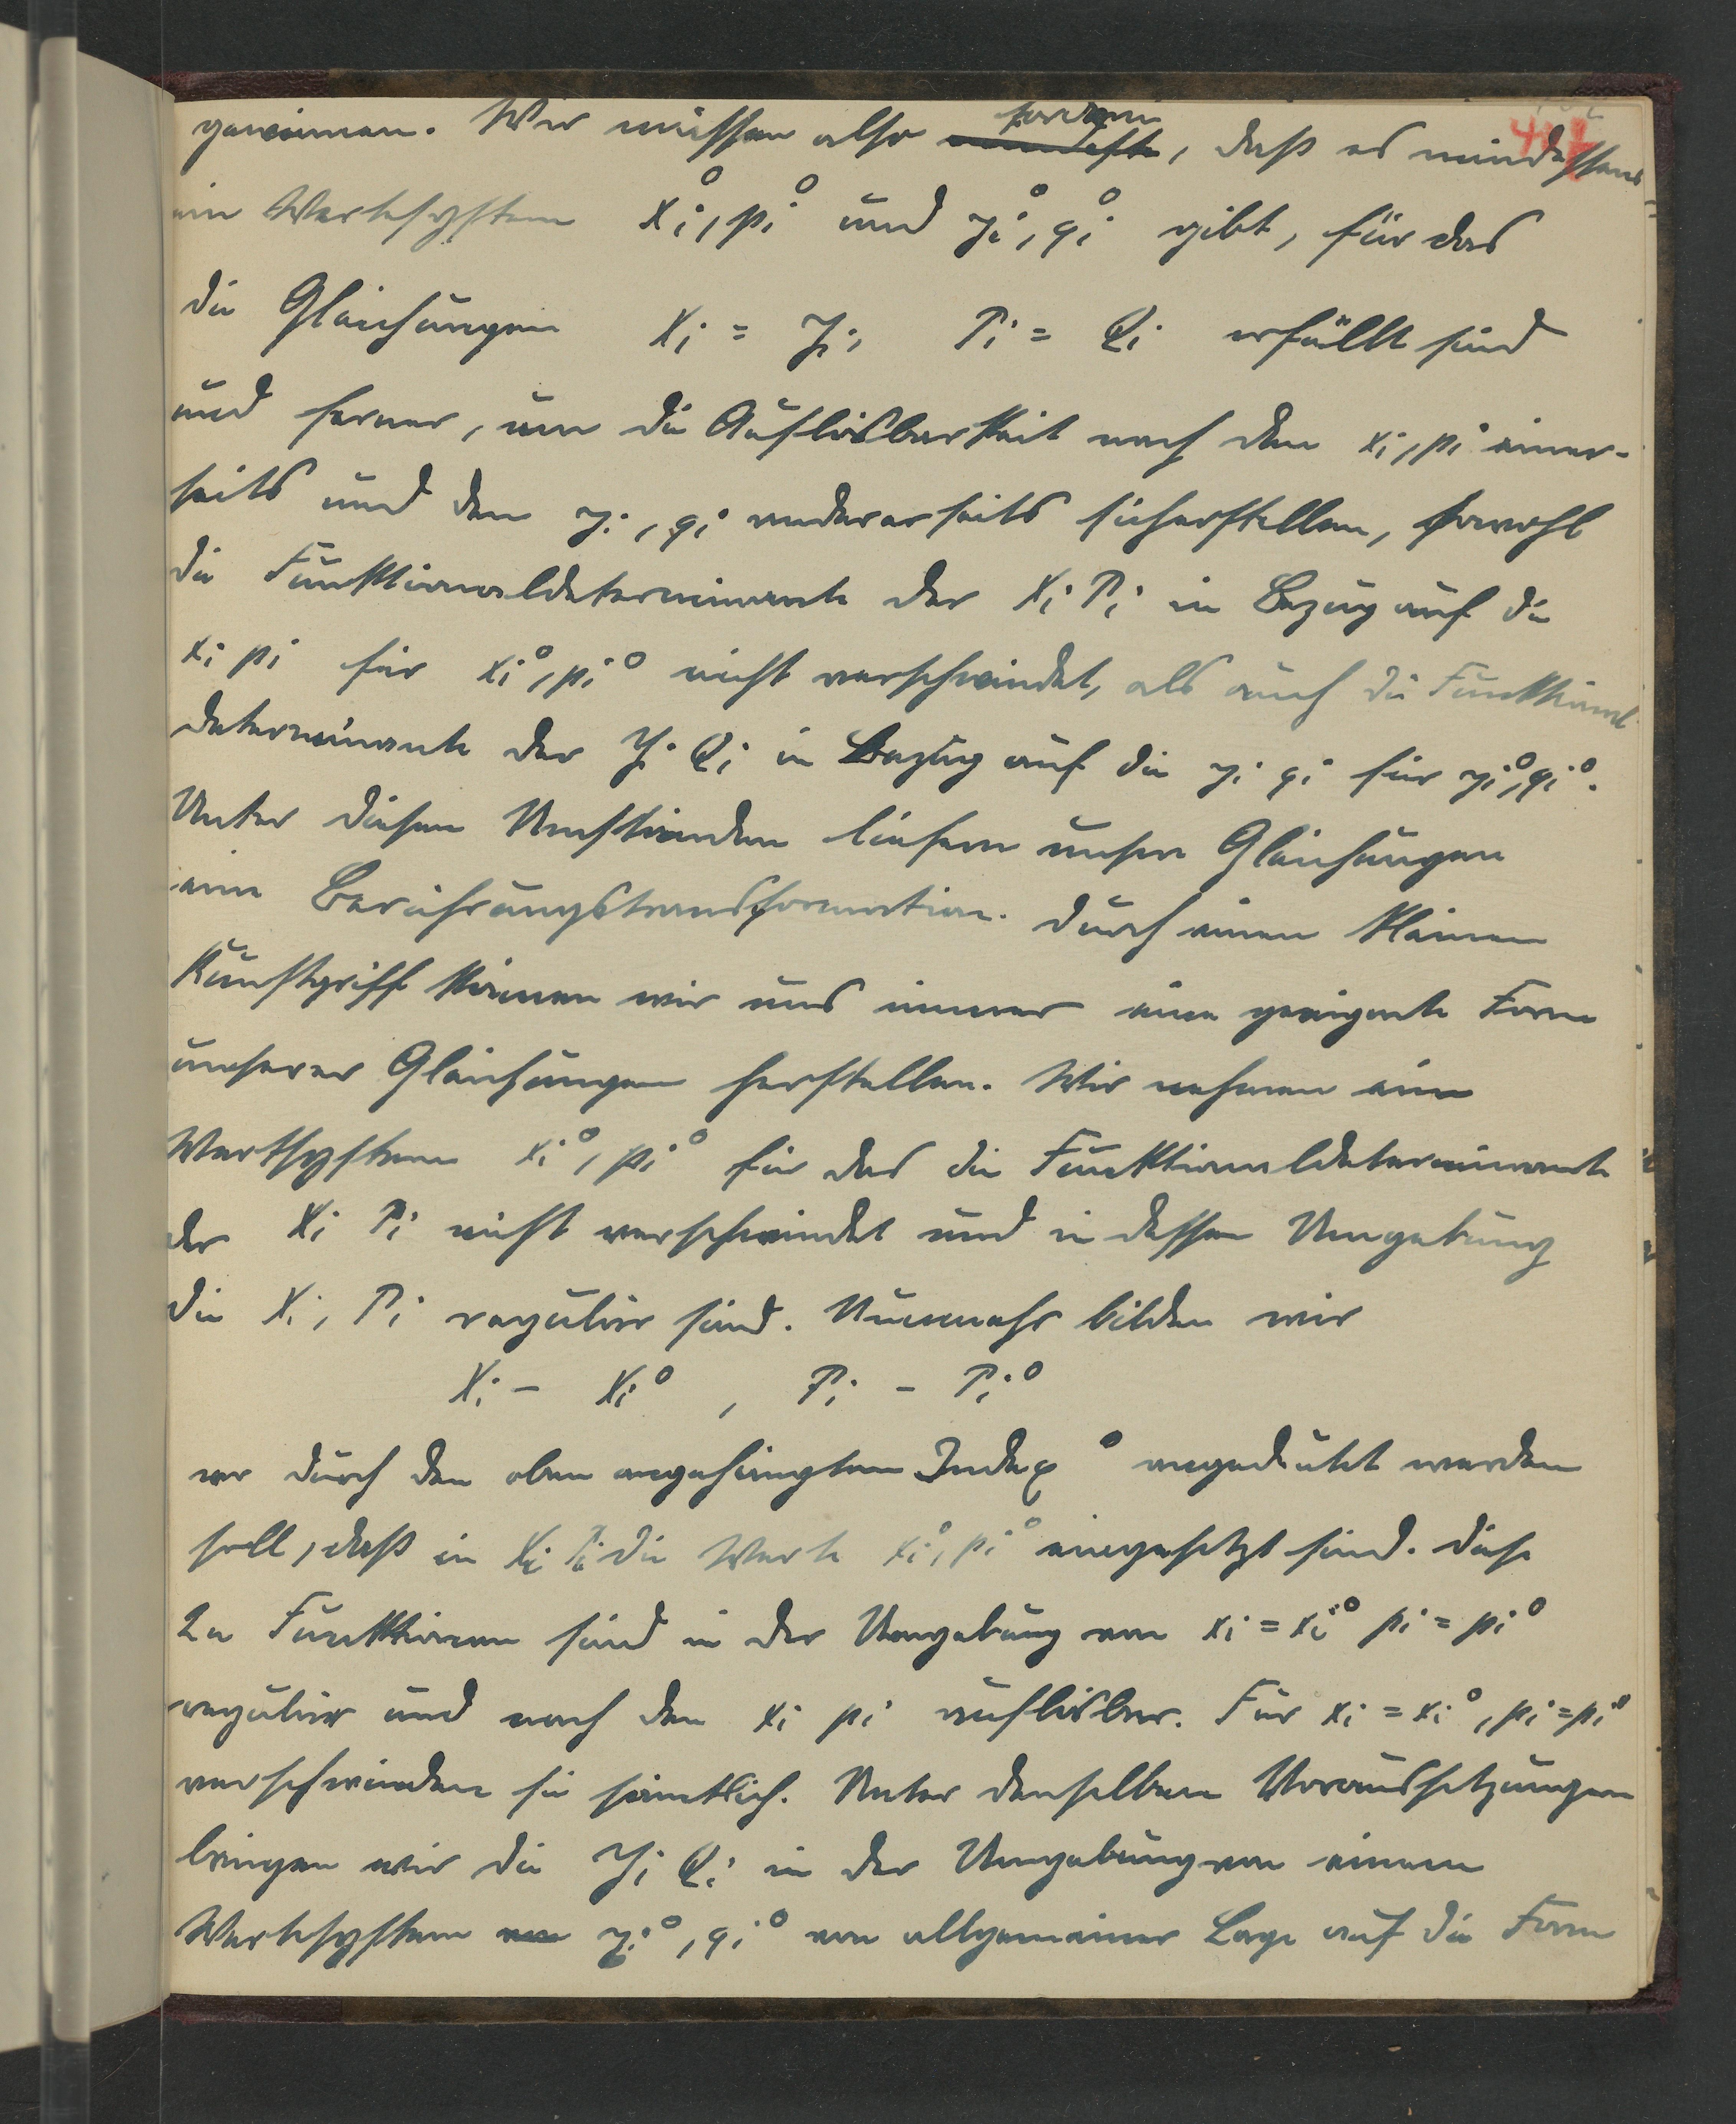 fordern
gewinnen. Wir müssen also, daß es mindestens
ein Wertesystem x̊i, p̊i und ẙi, q̊i gibt, für das
die Gleichungen Xi = Yi, Pi = Qi erfüllt sind
und ferner, um die Auflösbarkeit nach den xi, pi einer-
seits und den yi, qi andererseits sicherstellen, sowohl
die Funktionaldeterminante der Xi Pi in Bezug auf die
xi pi für xi°, pi° nicht verschwindet, als auch die Funktional
determinante der Yi Qi in Bezug auf die yi qi für yi°, qi°.
Unter diesen Umständen liefern unsere Gleichungen
eine Berührungstransformation. Durch einen kleinen
Kunstgriff können wir uns immer eine geeignete Form
unserer Gleichungen herstellen. Wir nehmen ein
Wertsystem xi°, pi° für das die Funktionaldeterminante
der Xi Pi nicht verschwindet und in dessen Umgebung
die Xi, Pi regulär sind. Nunmehr bilden wir
Xi – Xi°, Pi – Pi°
wo durch den oben angehängten Index ° angedeutet werden
soll, daß in Xi Pi die Werte xi°, pi° eingesetzt sind. Diese
2n Funktionen sind in der Umgebung von xi = xi° pi = pi°
regulär und nach den xi pi auflösbar. Für xi = xi°, pi = pi°
verschwinden sie sämtlich. Unter denselben Voraussetzungen
bringen wir die Yi Qi in der Umgebung von einem
Wertesystem yi°, qi° von allgemeiner Lage auf die Form